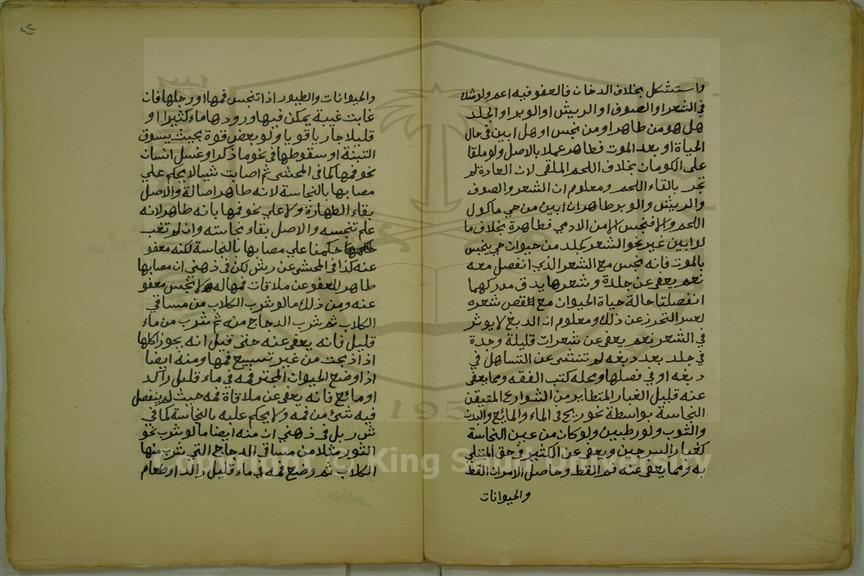 واستشكل بخلاف الدخان فالعفو فيه اعم ولو شك
في الشعر او الصوف او الريش او الوبر او الجلد
هل هو من طاهر او من نجس او هل ابين في حال
الحياة او بعد الموت فطاهر عملا بالاصل ولو ملقا
على الكومان بخلاف اللحم الملقى لان العادة لم
تجر بالقاء اللحم ومعلوم ان الشعر والصوف
والريش والوبر طاهر ان ابين من حي ماكول
اللحم والا فنجس الا من الادمي فطاهرة بخلاف ما
لو ابين غير نحو الشعر كجلد من حيوان حي ينجس
بالموت فانه نجس مع الشعر الذي انفصل معه
نعم يعفى عن جلدة وشعرها يدق مدركها
انفصلتا حالة حياة الحيوان مع قص شعره
لعسر التحرز عن ذلك ومعلوم ان الدبغ لا يوثر
في الشعر نعم يعفى عن شعرات قليلة وحدة
في جلد بعد دبغه لم تنشئ عن التساهل في
دبغه او في فصلها ومحله كتب الفقه ومما يعفى
عنه قليل الغبار المتطاير من الشوارع المتيقن
النجاسة بواسطة نحو ريح في الماء والمائع والبدن
والثوب ولو رطبين ولو كان من عين النجاسة
كغبار السرجين ويعفى عن الكثير في حق المبتلي
به ومما يعفى عنه فم القط وحاصل الامر ان القط
والحيوانات
والحيوانات والطيور اذا تنجس فمها او رجلها فان
غابت غيبة يمكن فيها ورودها ماء كثيرا او
قليلا جاريا قويا ولو بعض قوة بحيث يسوق
التبنة او سقوطها في نحو ما ذكر او غسل انسان
نحو فمها كما في المحشي ثم اصابت شيا لا يحكم علي
مصابها بالنجاسة لانه طاهر اصالة والاصل
بقاء الطهارة ولا علي نحو فمها بانه طاهر لانه
علم تنجسه والاصل بقاء نجاسته وان لم تغب
حكمنا علي مصابها بالنجاسة لكنه معفو
عنه كذا في المحشي عن ريش لكن في ذهني ان مصابها
طاهر للعفو عن ملاقات فمها له لا نجس معفو
عنه ومن ذلك ما لو شرب الكلاب من مساقي
الكلاب ثم شرب الدجاج منه ثم شرب من ماء
قليل فانه يعفى عنه حتى قيل انه يجوز اكلها
اذا ذبحت من غير تسبيع فمها ومنه ايضا
اذا وضع الحيوان المجتر فمه في ماء قليل راكد
او مائع فانه يعفى عن ملاقاة فمه حيث لم ينفصل
فيه شئ من فمه ولا يحكم عليه بالنجاسة كما في
ش ر بل في ذهني ان منه ايضا ما لو شرب نحو
الثور مثلا من مساقي الدجاج التي شربت منها
الكلاب ثم وضع فمه في ماء قليل راكد او طعام
Copyright © King Saud University
195